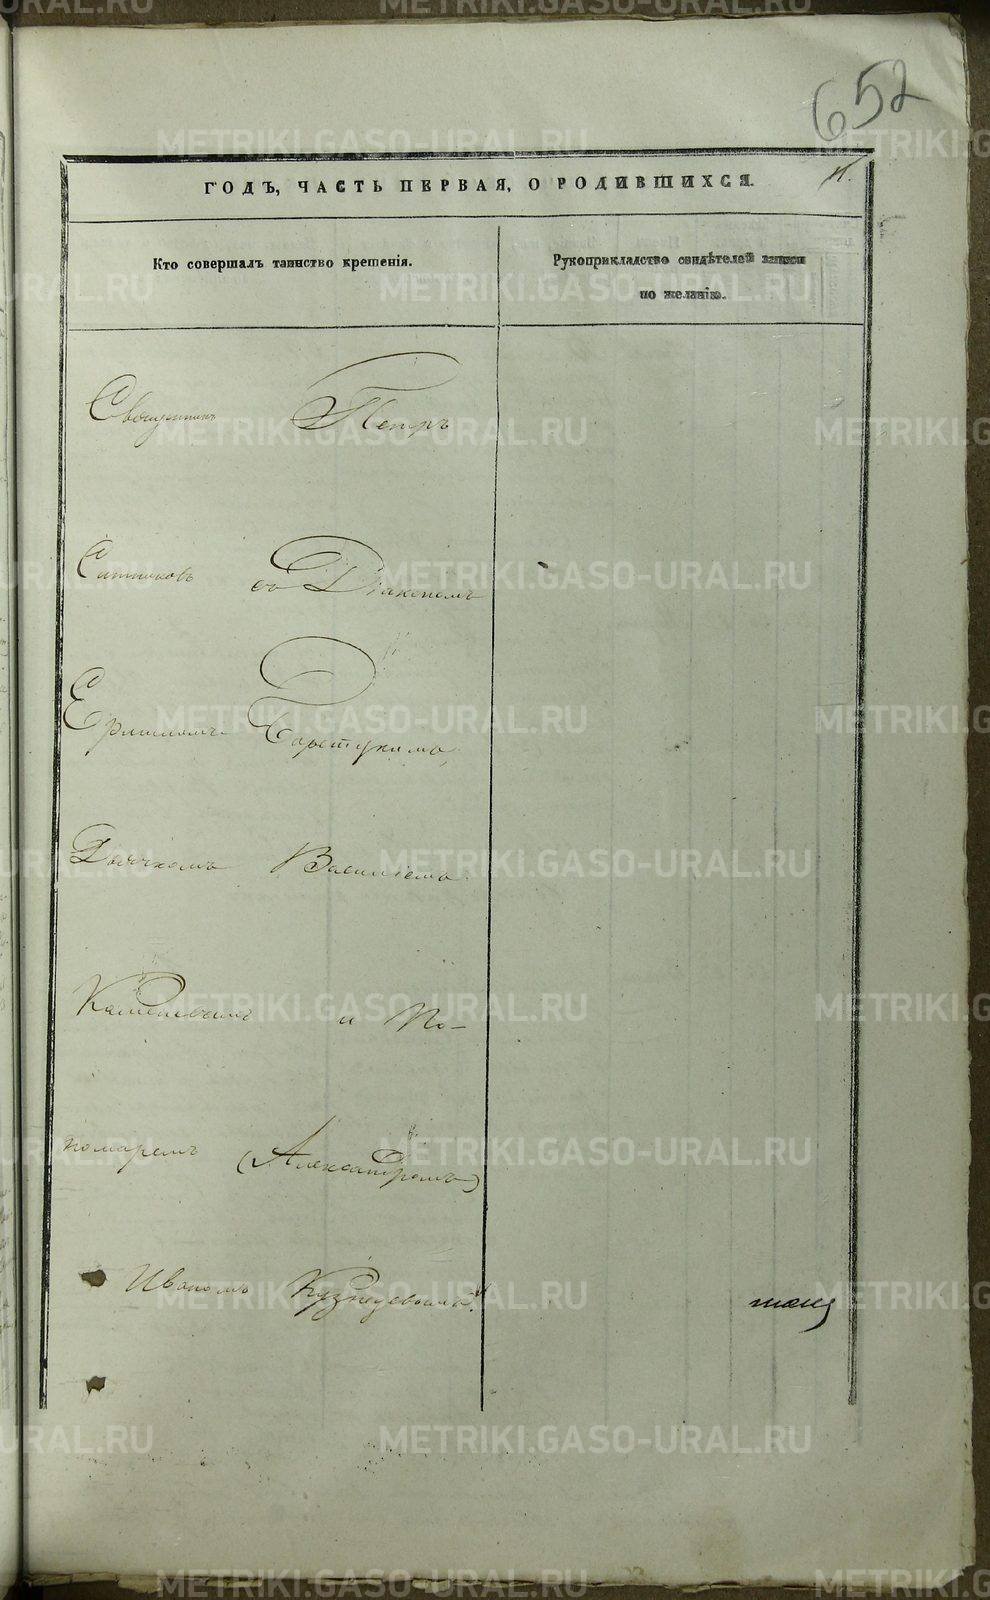 652
ГОДЪ, ЧАСТЬ ПЕРВАЯ, О РОДИВШИХСЯ. 11.
Кто совершалъ таинство крещенія.
Рукоприкладство свидѣтелей записи
по желанію.
Священникъ Петръ
Ситниковъ съ Діакономъ
Ефимомъ
Дьячкомъ Василіемъ
и По-
номаремъ (Александромъ)
Иваномъ Кузнецовымъ.
METRIKI.GASO-URAL.RU